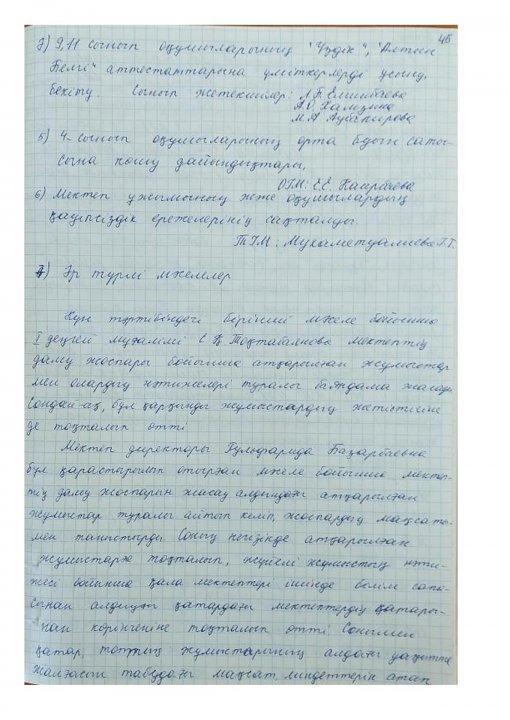 46
7) 9,11 сынып оқушыларының "Үздік", "Алтын
Белгі" аттестаттарына үміткерлерді ұсыну,
бекіту. Сынып жетекшілер:
А.О. Хамзина
М.А. Аубакирова
5) 4-сынып оқушыларының орта буын саты-
сына көшу дайындықтары.
ОІМ: Е.Е. Каирбаева
6) Мектеп ұжымының және оқушылардың
қауіпсіздік ережелерінің сақталуы.
ТІМ: Мухаметкалиева Г.Т.
7) Әр түрлі мәселелер
Күн тәртібіндегі бірінші мәселе бойынша
I деңгей мұғалімі мектептің
даму жоспары бойынша атқарылған жұмыстар
мен олардың нәтижелері туралы баяндама жасады
Сондай-ақ, бұл қарқынды жұмыстардың жетістігіне
де тоқталып өтті
Мектеп директоры Гульфарида Базарбаевна
бұл қарастырылып отырған мәселе бойынша мектеп-
тің даму жоспарын жасау алдындағы атқарылған
жұмыстар туралы айтып келіп, жоспардың мақсаты-
мен таныстырды Соның негізінде атқарылған
жұмыстарға тоқталып, жүйелі жұмыстың нәти-
жесі бойынша қала мектептері ішінде білім сапа-
сынан алдыңғы қатардағы мектептердің қатары-
нан көрінгеніне тоқталып өтті Сонымен
қатар, топтың жұмыстарының алдағы уақытта
жалғасын табудағы мақсат, міндеттерін атап